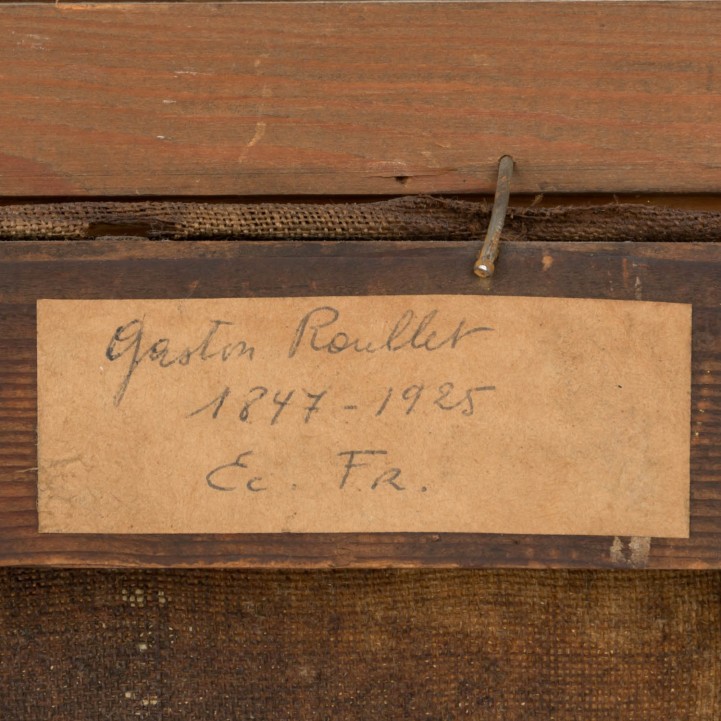 Gaston Roullet
1847-1925
Ec. Fr.